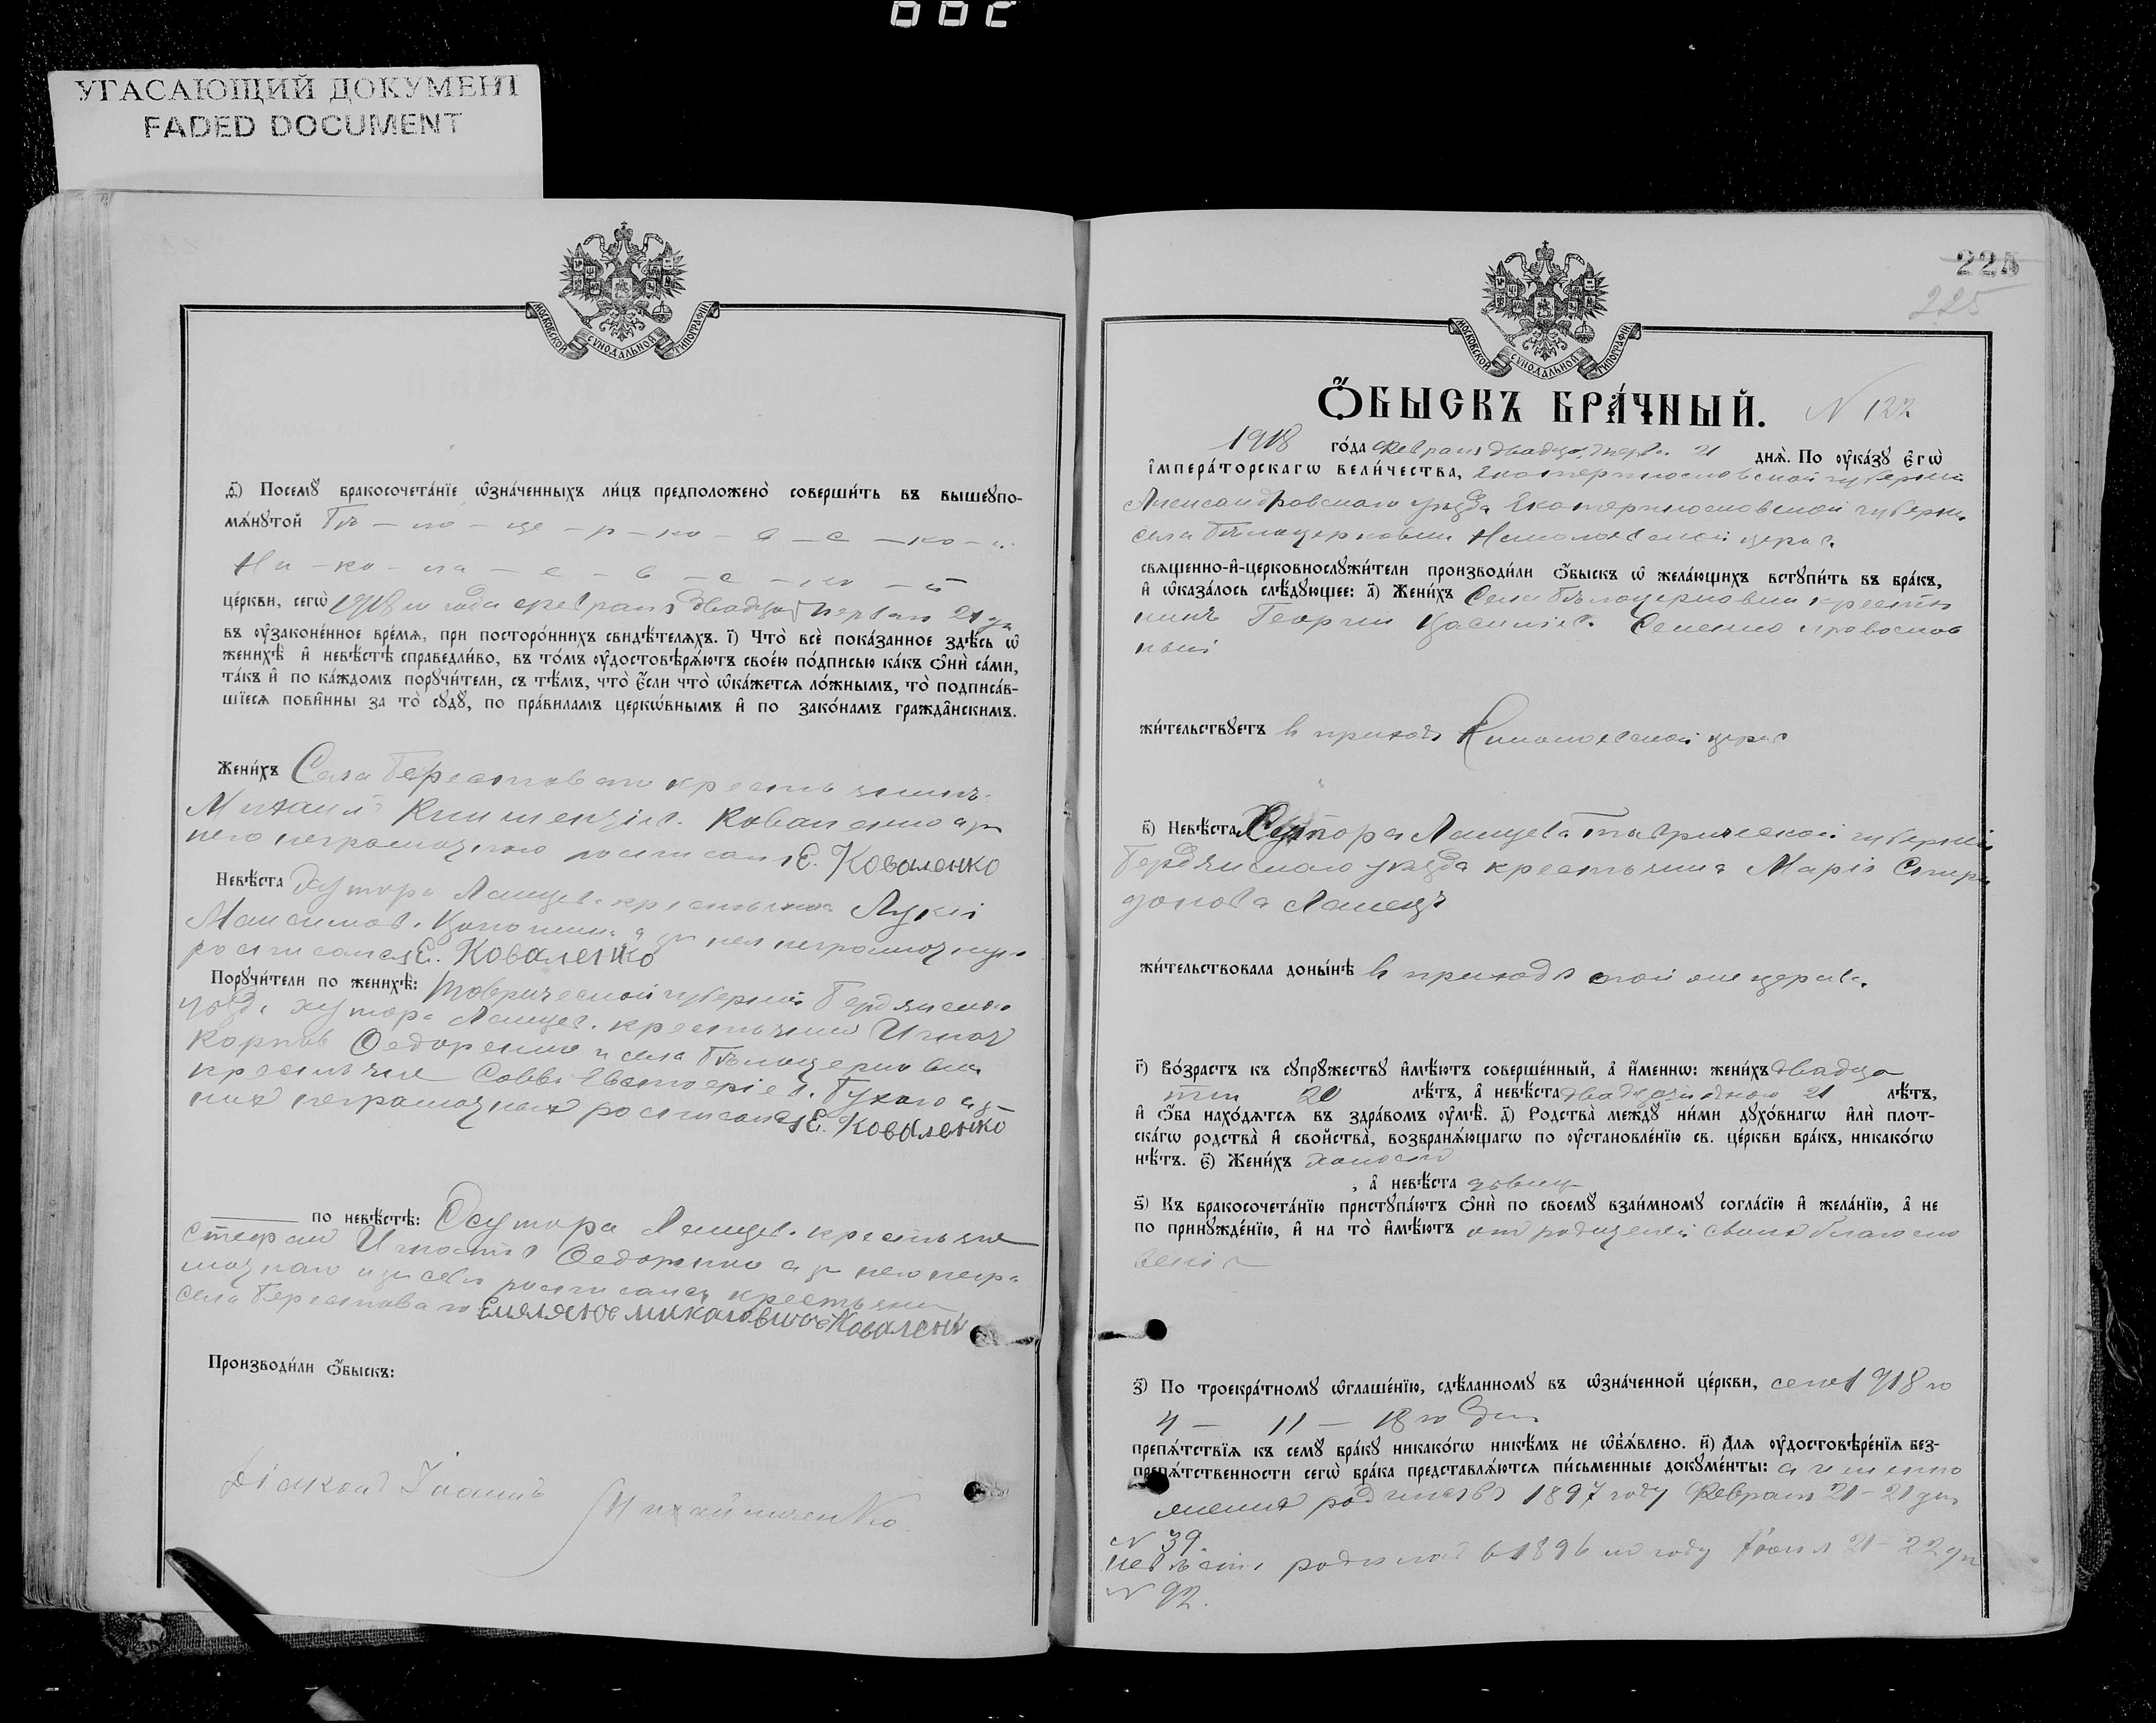 002
УГАСАЮЩИЙ ДОКУМЕНТ
FADED DOCUMENT
МОСКОВСКОЙ СѴНОДАЛЬНОЙ ТИПОГРАФІИ
д҃) Посемꙋ̀ бракосочета́нїе ѡ҆зна́ченныхъ ли́цъ предположено̀ соверши́ть въ вышеꙋпо-
мѧ́нꙋтой Бѣ-ло-це-р-ко-в-с-ко-й
Ни-ко-ла-е-в-с-ко-й
це́ркви, сегѡ̀ 1918 го года февраля двадцат первого 21 дн
въ ᲂу҆законе́нное вре́мѧ, при посторо́ннихъ свидѣ́телѧхъ. і҃) Что̀ всѐ пока́занное здѣ́сь ѡ҆
женихѣ̀ и҆ невѣ́стѣ справедли́во, въ то́мъ ᲂу҆достовѣрѧ́ютъ свое́ю по́дписью ка́къ ѻ҆нѝ са́ми,
та́къ и҆ по ка́ждомъ порꙋчи́тели, съ тѣ́мъ, что̀ є҆́сли что̀ ѡ҆ка́жетсѧ ло́жнымъ, то̀ подписа́в-
шїесѧ пови́нны за то̀ сꙋдꙋ̀, по пра́виламъ церкѡ́внымъ и҆ по зако́намъ гражда̑нскимъ.
Жени́хъ Села Берестоваго крестьянинъ
Михаилъ Коваленко а за
него неграмотного росписался Е. Коваленко
Невѣ́ста Хутора Ланцева крестьянка Лукія
Максимов. а за нея неграмотную
росписался Е. Коваленко
Порꙋчи́тели по женихѣ̀: Таврической губерніи Бердянскаго
уѣзда хутора Ланцев. крестьянин Игнат
Карпов Федоренко и села Бѣлоцерковки
крестьяне Савва Евстафіев. а за
них неграмотных росписался Е. Коваленко
по невѣ́стѣ: Хутора Ланцев. крестьяне
Стефан Игнатов Федоренко а за него негра
мотнаго и за себя росписался крестьянин
Села Берестоваго Емилян Коваленко
Производи́ли ѻ҆́быскъ:
Діаконъ Іоаннъ
Михайличенко
225
225
МОСКОВСКОЙ СѴНОДАЛЬНОЙ ТИПОГРАФІИ
Ѻ҆́БЫСКЪ БРА́ЧНЫЙ. N 122
1918 го́да Февраля двадца перв. 21 днѧ̀. По ᲂу҆ка́зꙋ є҆гѡ̀
і҆мпера́торскагѡ вели́чества, Екатеринославской губерніи
Александровскаго уѣзда Екатеринославской губерни
села Бѣлоцерковки Николаевской церкв.
свѧще́нно-и҆-церковнослꙋжи́тели производи́ли ѻ҆́быскъ ѡ҆ жела́ющихъ встꙋпи́ть въ бра́къ,
и҆ ѡ҆каза́лось слѣ́дꙋющее: а҃) Жени́хъ Села Бѣлоцерковки крестья
нинъ Георгій Василіев. Семенко православ
ный
жи́тельствꙋетъ в приходѣ Николаевской церкв
в҃) Невѣ́ста Хутора Ланцева Таврической губерніи
Бердянскаго уѣзда крестьянка Марія Спири
донова
жи́тельствовала доны́нѣ в приходѣ той же церкв.
г҃) Во́зрастъ къ сꙋпрꙋ́жествꙋ и҆мѣ́ютъ соверше́нный, а҆ и҆́меннѡ: жени́хъ двадца
ти 20 лѣ́тъ, а҆ невѣ́ста двадцати одного 21 лѣ́тъ,
и҆ ѻ҆́ба нахо́дѧтсѧ въ здра́вомъ ᲂу҆мѣ̀. д҃) Родства̀ междꙋ̀ ни́ми дꙋхо́внагѡ и҆лѝ плот-
ска́гѡ родства̀ и҆ свойства̀, возбранѧ́ющагѡ по ᲂу҆становле́нїю св. це́ркви бра́къ, никако́гѡ
нѣ́тъ. є҃) Жени́хъ холост
, а҆ невѣ́ста дѣвиц
ѕ҃) Къ бракосочета́нїю пристꙋпа́ютъ ѻ҆нѝ по своемꙋ̀ взаи́мномꙋ согла́сїю и҆ жела́нїю, а҆ не
по принꙋжде́нїю, и҆ на то̀ и҆мѣ́ютъ от родителей своих благосло
венія
з҃) По троекра́тномꙋ ѡ҆глаше́нїю, сдѣ́ланномꙋ въ ѡ҆зна́ченной це́ркви, сего 1918 го
4 — 11 — 18 го дня
препѧ́тствїѧ къ семꙋ̀ бра́кꙋ никако́гѡ никѣ́мъ не ѡ҆б̾ѧ́влено. и҃) Длѧ ᲂу҆достовѣре́нїѧ без-
препѧ́тственности сегѡ̀ бра́ка представлѧ́ютсѧ пи́сьменные докꙋме́нты: а именно
жених родился в 1897 году Февраля 21-21 дня
N 39
невѣста родилась в 1896 го году 21-22 дн
N 92.